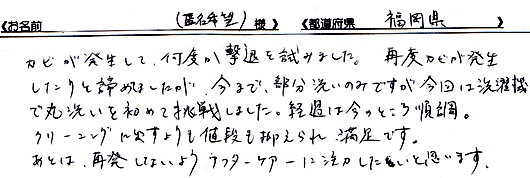 《お名前 (匿名希望) 様》 《都道府県 福岡県 》
カビが発生して、何度か撃退を試みました。 再度カビが発生
したりと諦めましたが、今まで、部分洗いのみですが今回は洗濯機
で丸洗いを初めて挑戦しました。経過は今のところ順調。
クリーニングに出すよりも値段も抑えられ、満足です。
あとは、再発しないようアフターケアーに注力したいと思います。